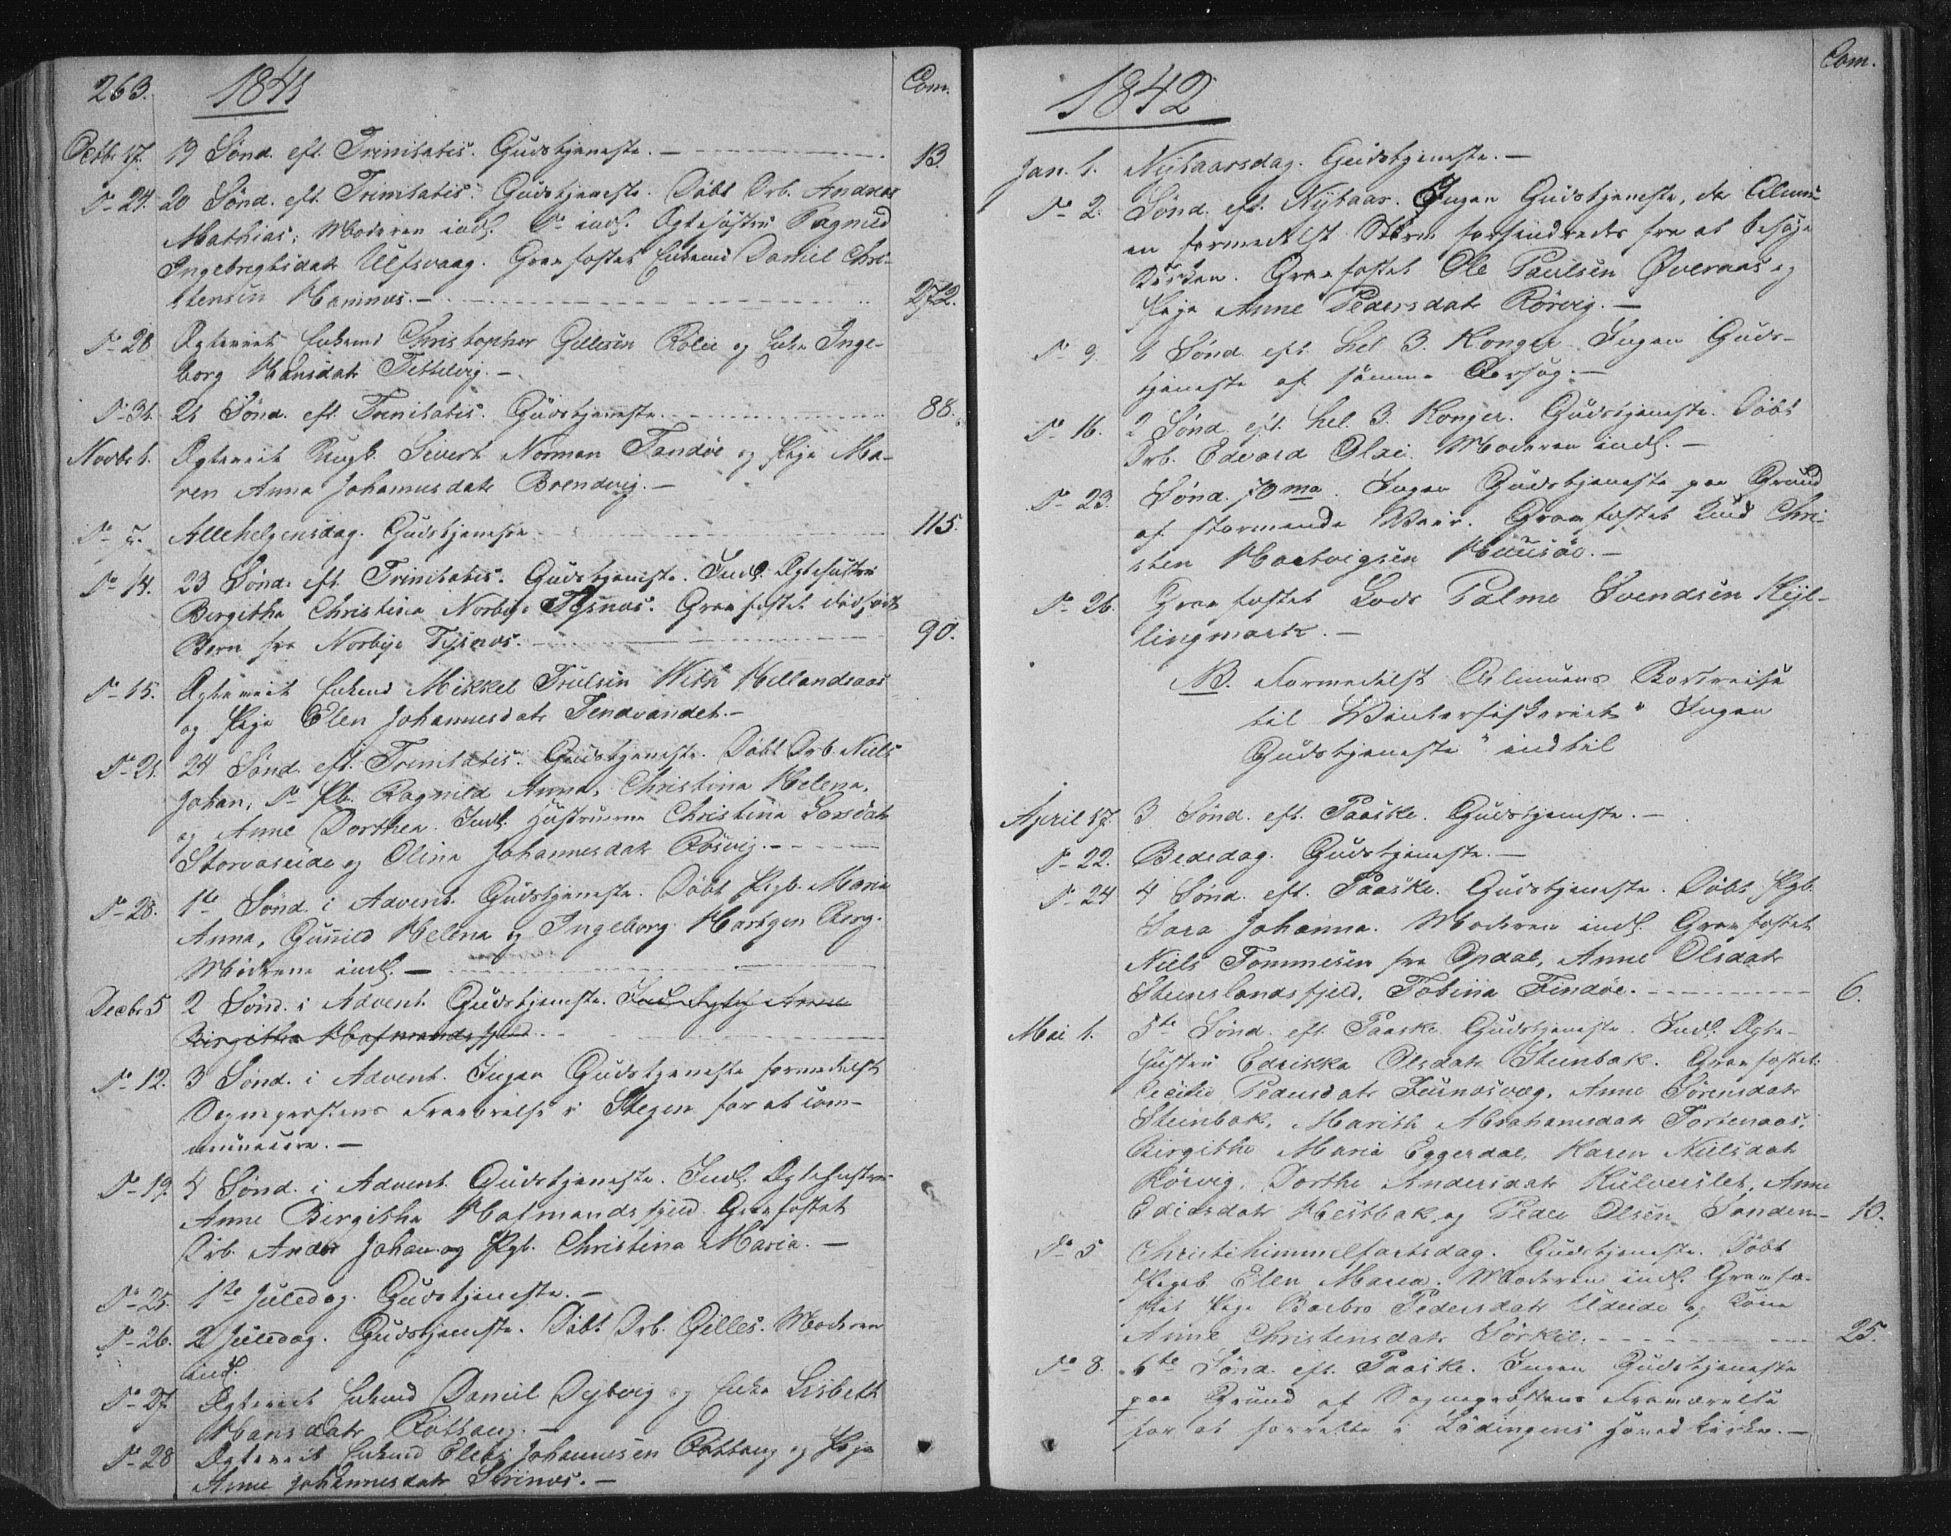 263. 1841 Com.
Octbr 17. 19 Sønd. eft. Trinitatis. Gudstjeneste. — 13
Do 24. 20 Sønd. eft. Trinitatis. Gudstjeneste. Døbt Drb. Andreas
Mathias; Moderen indl. Do indl. Ægtehustru Ragnild
Ingebregtsdatr Ulfsvaag. Graafæstet Enkemd Daniel Chri-
stensen Hamnæs. — 272.
Do 28 Ægteviet Enkemd Christopher Gillesen og Enke Inge-
borg Hansdatr —
Do 31. 21 Sønd. eft. Trinitatis. Gudstjeneste. 88.
Novbr 1. Ægteviet Ungk. Sivert Norman Tandøe og Pige Ma-
ren Anna Johannesdatr —
Do 7. Allehelgensdag. Gudstjeneste. 115.
Do 14. 23 Sønd. eft. Trinitatis. Gudstjeneste. Indl. Ægtehustru
Birgitha Christina Norbye Tysnæs. Graafæstet dødfødt
Barn fra Norbye Tysnæs. 90.
Do 15. Ægteviet Enkemd Mikkel Trulsen With Hellandsaas
og Pige Elen Johannesdatr Tendvandet. —
Do 21. 24 Sønd. eft. Trinitatis. Gudstjeneste. Døbt Drb. Niels
Johan, Do Pb. Ragnild Anna, Christina Helena,
og Anne Dorthea. Indl. Hustruerne Christina Larsdatr
Storvaseide og Olina Johannesdatr Røsvig. —
Do 28. 1te Sønd. i Advent. Gudstjeneste. Døbt Pigb. Maria
Anna, Gunild Helena og Ingeborg
Mødrene indl. —
Decbr 5 2 Sønd. i Advent. Gudstjeneste. Indl. Anne
Birgitha Hofmandsfjeld.
Do 12. 3 Sønd. i Advent. Ingen Gudstjeneste formedelst
Sognepræstens Fraværelse i Stegen for at com-
municere. —
Do 19. 4 Sønd. i Advent. Gudstjeneste. Indl. Ægtehustru
Anne Birgitha Hofmandsfjeld. Graafæstet
Drb. Anders Johan og Pgb. Christina Maria. —
Do 25. 1te Juledag. Gudstjeneste. —
Do 26. 2 Juledag. Gudstjeneste. Døbt Drb. Gilles. Moderen
indl.
Do 27. Ægteviet Enkemd Daniel Dybvig og Enke Lisbeth
Hansdatr Rottang. —
Do 28 Ægteviet Enkemd Johannesen Rottang og Pige
Anne Johannesdatr —
1842 Com.
Jan. 1. Nytaarsdag. Gudstjeneste. —
Do 2. Sønd. eft. Nytaar. Ingen Gudstjeneste, da Almu-
en formedelst Storm forhindredes fra at besøge
Kirken. Graafæstet Ole Paulsen Øveraas og
Pige Anne Pedersdatr Rørvig. —
Do 9. 1 Sønd. eft. hel. 3. Konger. Ingen Guds-
tjeneste af samme Aarsag. —
Do 16. 2 Sønd. eft. hel. 3. Konger. Gudstjeneste. Døbt
Drb. Edvard Olai. Moderen indl. —
Do 23. Sønd. 70ma. Ingen Gudstjeneste paa Grund
af stormende Veir. Graafæstet Chri-
sten Hartvigsen —
Do 26. Graafæstet Lods Palme Svendsen Kejl-
lingmark. —
NB. Formedelst Almuens Bortreise
til Vinterfiskeriet "Ingen
Gudstjeneste" indtil
April 17. 3 Sønd. eft. Paaske. Gudstjeneste. —
Do 22. Bededag. Gudstjeneste. —
Do 24 4 Sønd. eft. Paaske. Gudstjeneste. Døbt Pgb.
Sara Johanna. Moderen indl. Graafæstet
Niels Tommesen fra Opdal, Anne Olsdatr
Steenslandsfjeld, Tobina Findøe. 6.
Mai 1. 5te Sønd. eft. Paaske. Gudstjeneste. Indl. Ægte-
hustru Edrikka Olsdatr Steinbak. Graafæstet
Cecilie Pedersdatr Anne Sørensdatr
Steinbak, Marith Abrahamsdatr
Birgithe Maria Eggerdal, Karen Nielsdatr
Rørvig, Dorthe Andersdatr Anne
Hestbak, og Peder Olsen Sanden — 10.
Do 5 Christihimmelfartsdag. Gudstjeneste. Døbt
Pigeb Elen Maria. Moderen indl. Graafæ-
stet Pige Barbro Pedersdatr og Kone
Anne Christensdatr Sørkil. 25.
Do 8. 6te Sønd. eft. Paaske. Ingen Gudstjeneste
paa Grund af Sognepræstens Fraværelse
for at forrette i Lødingens Hovedkirke. —